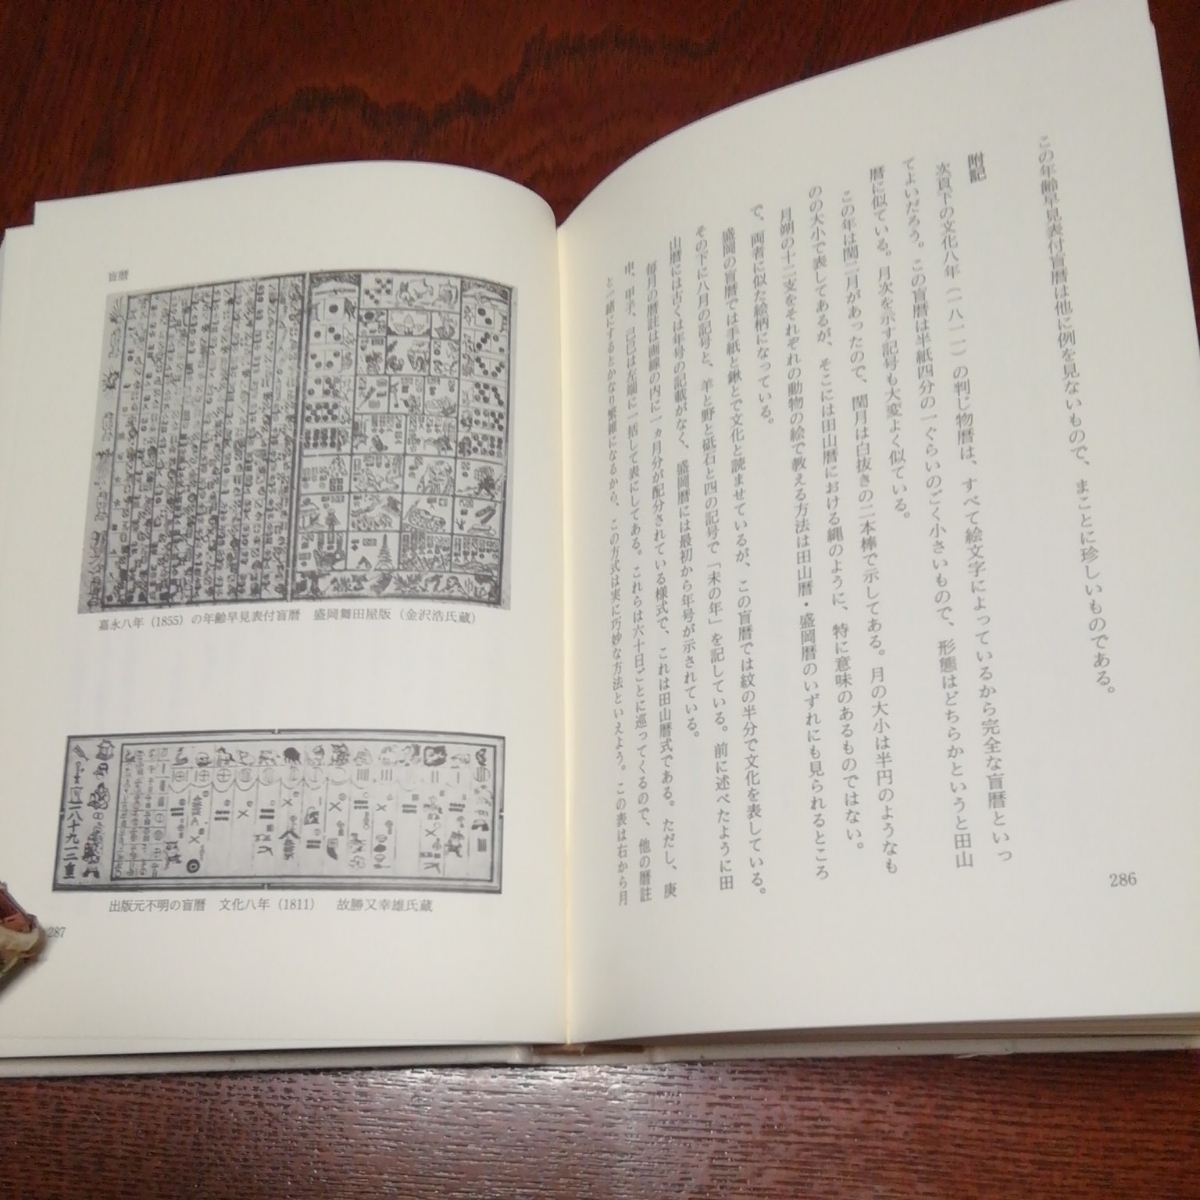 この年齢早見表付盲暦は他に例を見ないもので、まことに珍しいものである。
附記
次頁下の文化八年（一八一一）の判じ物暦は、すべて絵文字によっているから完全な盲暦といっ
てよいだろう。この盲暦は半紙四分の一ぐらいのごく小さいもので、形態はどちらかというと田山
暦に似ている。月次を示す記号も大変よく似ている。
この年は閏二月があったので、閏月は白抜きの二本棒で示してある。月の大小は半円のようなも
のの大小で表してあるが、そこには田山暦における縄のように、特に意味のあるものではない。
月朔の十二支をそれぞれの動物の絵で教える方法は田山暦・盛岡暦のいずれにも見られるところ
で、両者に似た絵柄になっている。
盛岡の盲暦では手紙と鍬とで文化と読ませているが、この盲暦では紋の半分で文化を表している。
その下に八月の記号と、羊と野と砥石と四の記号で「未の年」を記している。前に述べたように田
山暦には古くは年号の記載がなく、盛岡暦には最初から年号が示されている。
毎月の暦註は画線の内に一ヵ月分が配分されている様式で、これは田山暦式である。ただし、庚
申、甲子、己巳は左端に一括して表にしてある。これらは六十日ごとに巡ってくるので、他の暦註
と一緒にするとかなり繁雑になるから、この方式は実に巧妙な方法といえよう。この表は右から月
286
盲暦
嘉永八年（1855）の年齢早見表付盲暦　盛岡舞田屋版（金沢浩氏蔵）
一八十九一二重
出版元不明の盲暦　文化八年（1811）　故勝又幸雄氏蔵
287